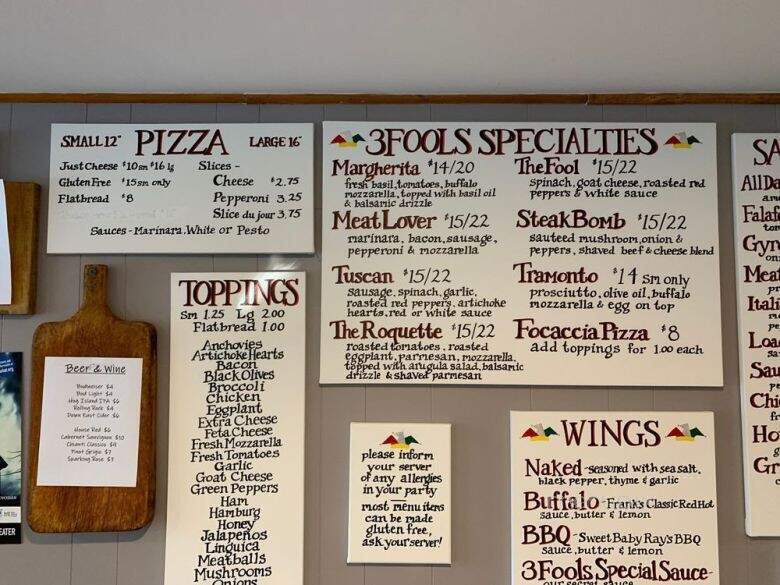 SMALL 12" PIZZA LARGE 16"
Just Cheese $10 sm $16 lg
Gluten Free $15 sm only
Flatbread $8
Slices -
Cheese $2.75
Pepperoni 3.25
Slice du jour 3.75
Sauces - Marinara, White or Pesto
3FOOLS SPECIALTIES
Margherita $14/20
fresh basil, tomatoes, buffalo
mozzarella, topped with basil oil
& balsamic drizzle
Meat Lover $15/22
marinara, bacon, sausage,
pepperoni & mozzarella
Tuscan $15/22
sausage, spinach, garlic,
roasted red peppers, artichoke
hearts, red or white sauce
The Roquette $15/22
roasted tomatoes, roasted
eggplant, parmesan, mozzarella,
topped with arugula salad, balsamic
drizzle & shaved parmesan
The Fool $15/22
spinach, goat cheese, roasted red
peppers & white sauce
Steak Bomb $15/22
sauteed mushroom, onion &
peppers, shaved beef & cheese blend
Tramonto $14 sm only
prosciutto, olive oil, buffalo
mozzarella & egg on top
Focaccia Pizza $8
add toppings for 1.00 each
TOPPINGS
Sm 1.25 Lg 2.00
Flatbread 1.00
Anchovies
Artichoke Hearts
Bacon
Black Olives
Broccoli
Chicken
Eggplant
Extra Cheese
Feta Cheese
Fresh Mozzarella
Fresh Tomatoes
Garlic
Goat Cheese
Green Peppers
Ham
Hamburg
Honey
Jalapeños
Linguica
Meatballs
Mushrooms
Onions
Beer & Wine
Budweiser $4
Bud Light $4
Hog Island IPA $6
Rolling Rock $4
Down East Cider $6
House Red $6
Cabernet Sauvignon $10
Chianti Classico $9
Pinot Grigio $7
Sparkling Rose $7
please inform
your server
of any allergies
in your party
most menu items
can be made
gluten free,
ask your server!
WINGS
Naked - seasoned with sea salt,
black pepper, thyme & garlic
Buffalo - Frank's Classic Red Hot
sauce, butter & lemon
BBQ - Sweet Baby Ray's BBQ
sauce, butter & lemon
3 Fools Special Sauce -
our secret sauce
SA
All Da
Falaf
Gyr
Meat
Itali
Loa
Sau
Chi
Hot
Gr
EATER